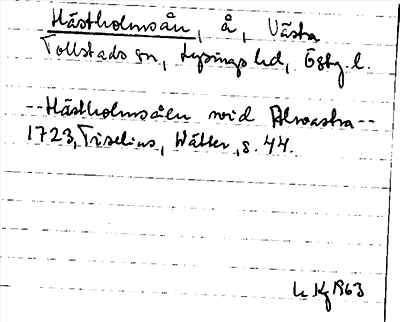 Hästholmsån, å, Västra
Tollstads sn, Lysings hd, Östg. l.
-- Hästholmsålen wid Alwastra --
1723, Tiselius, Wätter, s. 44.
1963